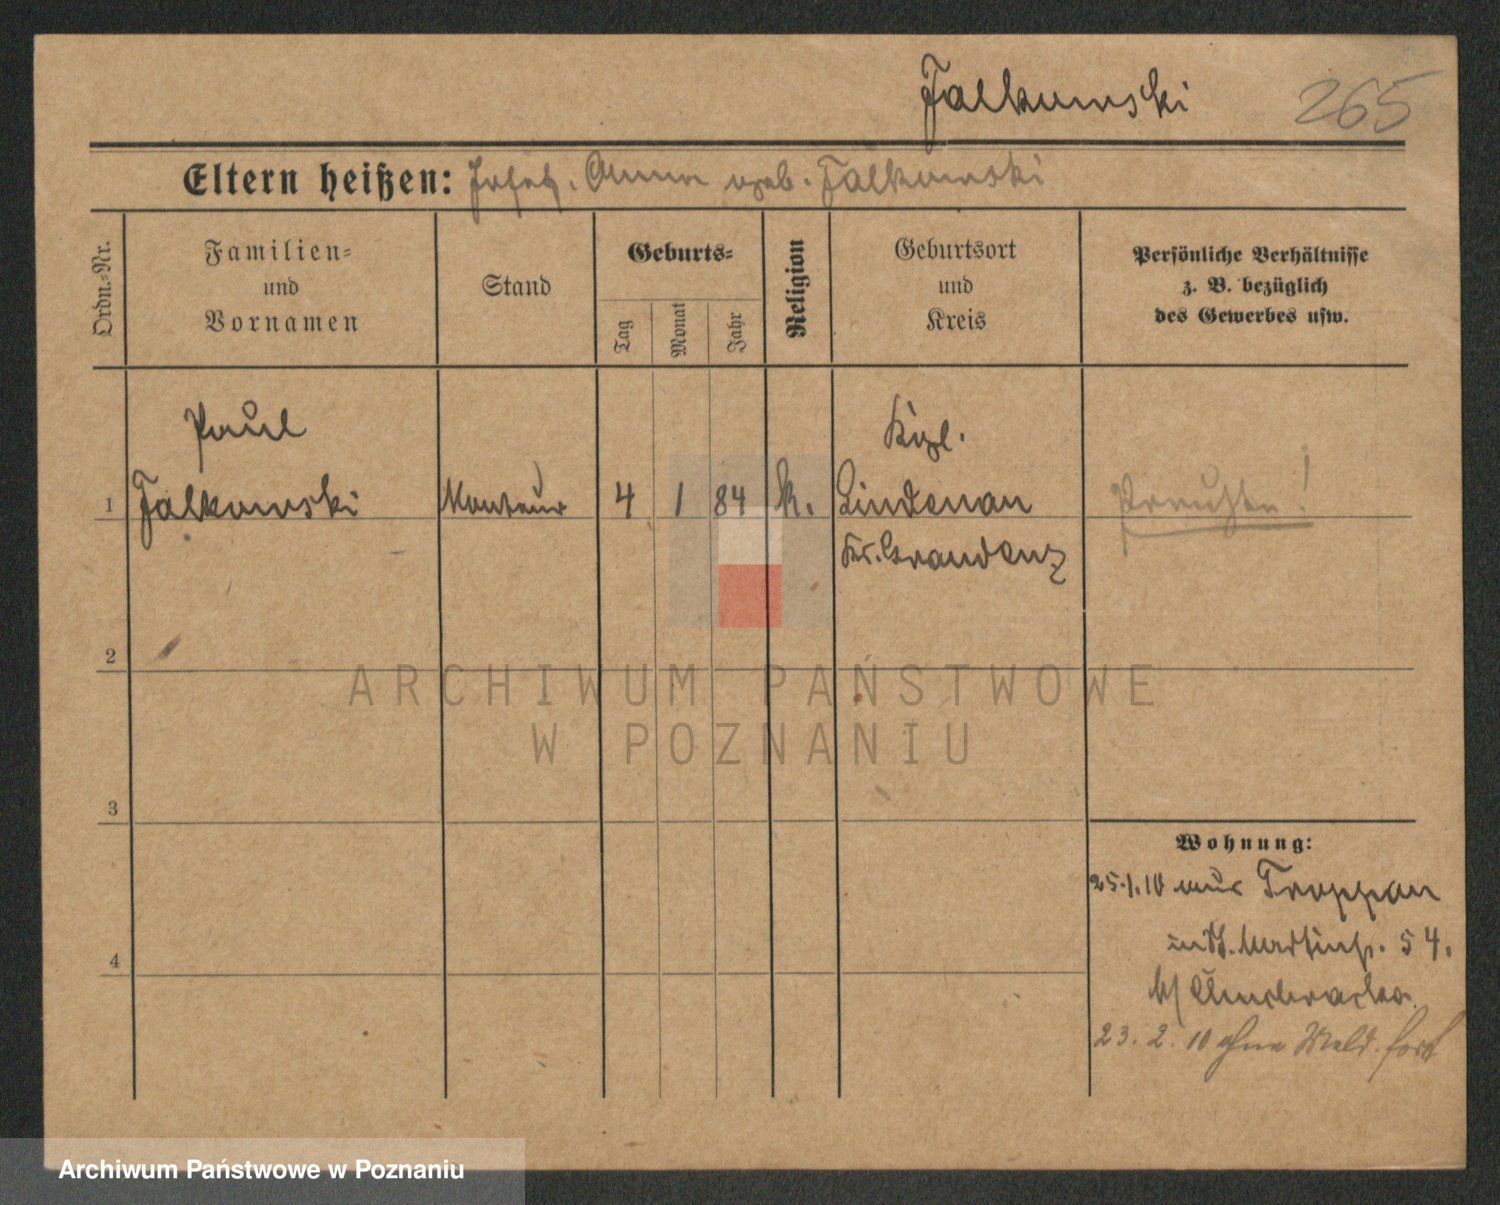 Falkowski 265
Eltern heißen: Josef, Anna geb. Falkowski
Ordn.=Nr.
Familien=
und
Vornamen
Stand
Geburts=
Tag
Monat
Jahr
Religion
Geburtsort
und
Kreis
Persönliche Verhältnisse
z. B. bezüglich
des Gewerbes usw.
Paul
Kgl.
1 Falkowski Monteur 4 1 84 k. Lindenau Preuße!
Kr. Graudenz
2
ARCHIWUM PAŃSTWOWE
W POZNANIU
3
Wohnung:
25.1.10 aus Troppau
St. Martinstr. 54.
b/
4
23. 2. 10 ohne Meld. fort
Archiwum Państwowe w Poznaniu